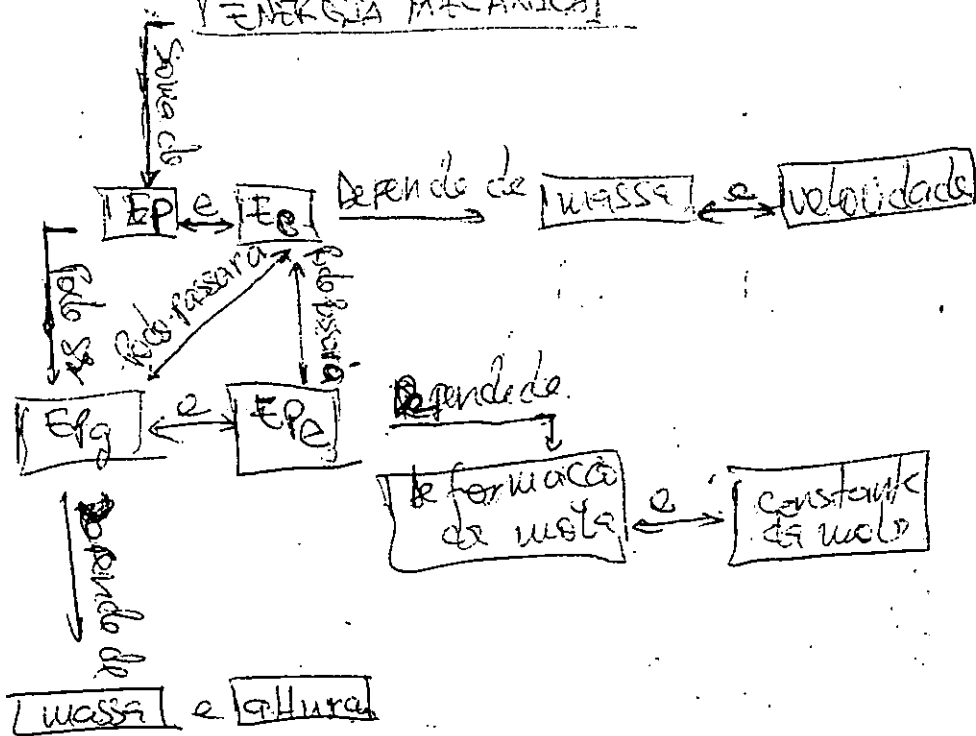 ENERGIA MECÂNICA
Soma da
EP e Ec Depende de massa e velocidade
Pode ser
Pode passar a
Pode passar a
EPg e EPe Depende de
deformação da mola e constante da mola
Depende de
massa e altura